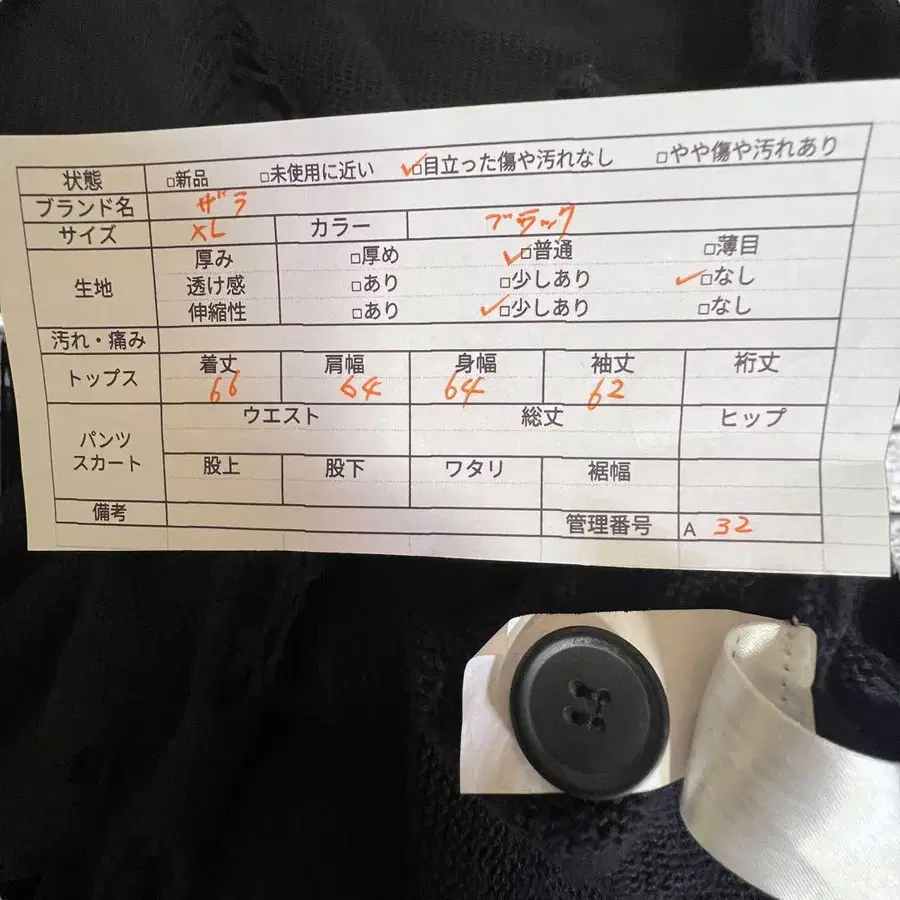 状態 □新品 □未使用に近い ✓□目立った傷や汚れなし □やや傷や汚れあり
ブランド名 ザラ
サイズ XL カラー ブラック
生地 厚み □厚め ✓□普通 □薄目
透け感 □あり □少しあり ✓□なし
伸縮性 □あり ✓□少しあり □なし
汚れ・痛み
トップス 着丈 肩幅 身幅 袖丈 裄丈
66 64 64 62
パンツ スカート ウエスト 総丈 ヒップ
股上 股下 ワタリ 裾幅
備考 管理番号 A 32